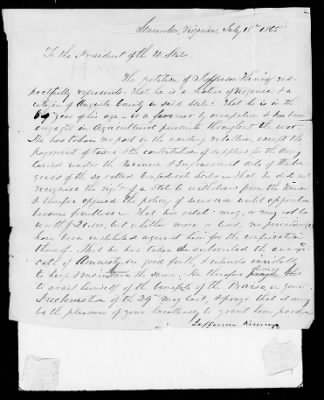 Staunton, Virginia, July 18th 1865
To the President of the U. States.
The petition of Jefferson Kinney res-
pectfully represents, that he is a native of Virginia & a
citizen of Augusta County in said State: That he is in the
69 year of his age - is a farmer by occupation & has been
engaged in Agricultural pursuits throughout the war -
He has taken no part in the existing rebellion, except the
payment of taxes & the contribution of supplies for the army
carried under the Revenue & Impressment acts of the Con-
gress of the so called Confederate States - that he did not
recognize the right of a State to withdraw from the Union
& therefore opposed the policy of secession until opposition
became fruitless - That his estate may, or may not be
worth $20,000, but whether more or less, no proceedings
have been instituted against him for the confiscation
thereof. That he has taken & subscribed the annexed
oath of Amnesty in good faith, & intends carefully
to keep & maintain the same. He therefore prays
to avail himself of the benefits of the Proviso in your
Proclamation of the 29th May last, & prays that it may
be the pleasure of your Excellency to grant him pardon
Jefferson Kinney